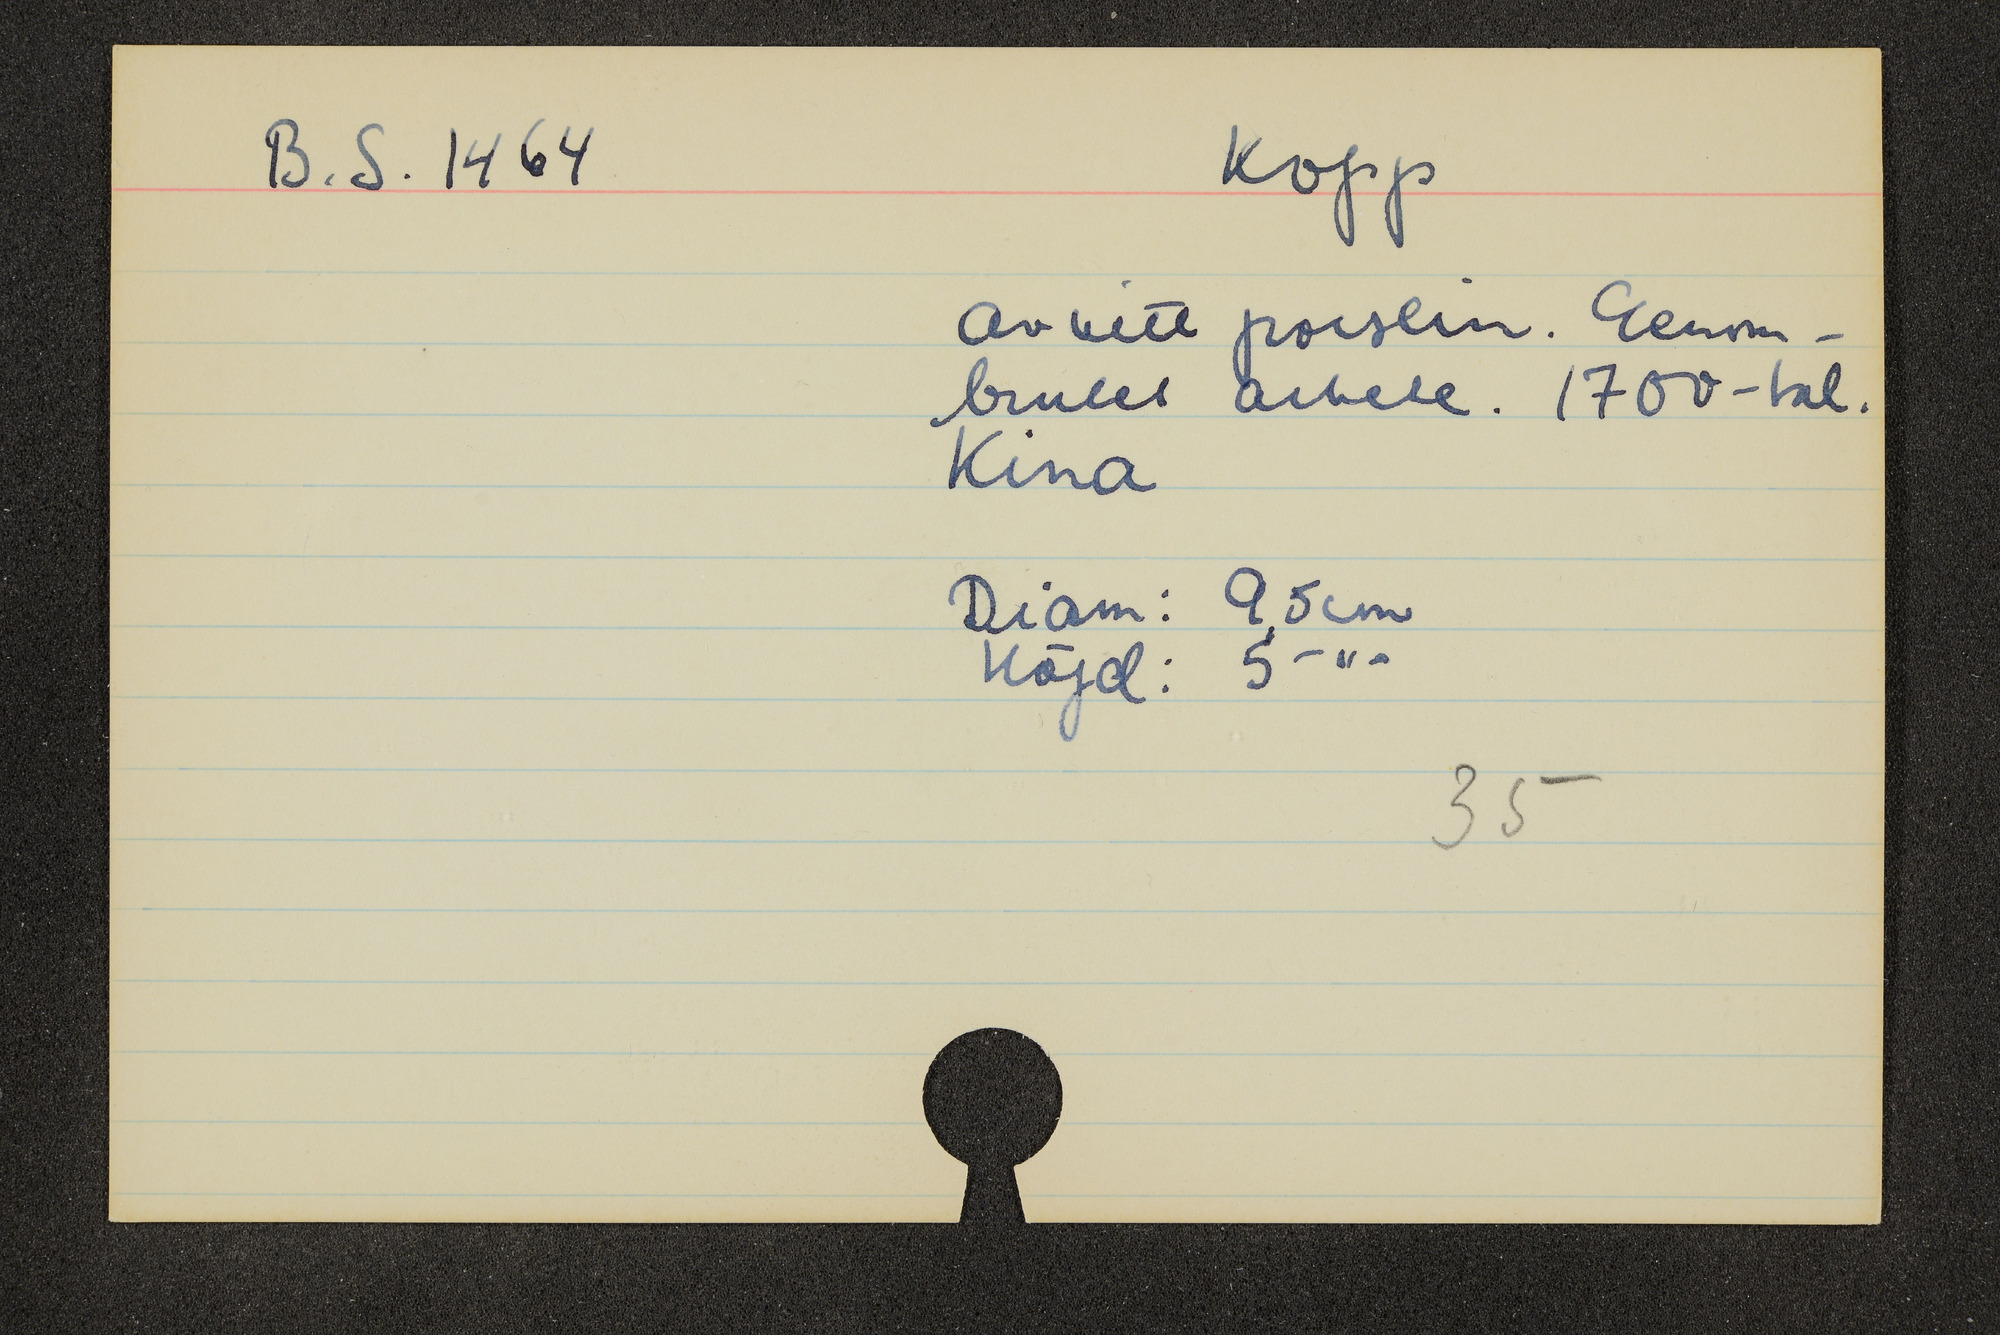 B.S. 1464
Kopp
av vitt porslin. Genom-
brutet arbete. 1700-tal.
Kina
Diam: 9,5cm
Höjd: 5 -"-
35